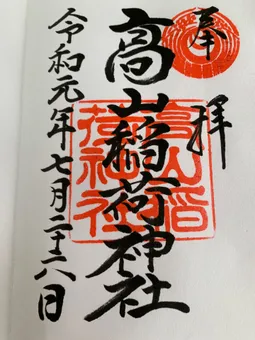 奉拝
高山稲荷神社
令和元年七月二十六日
高山稲荷神社